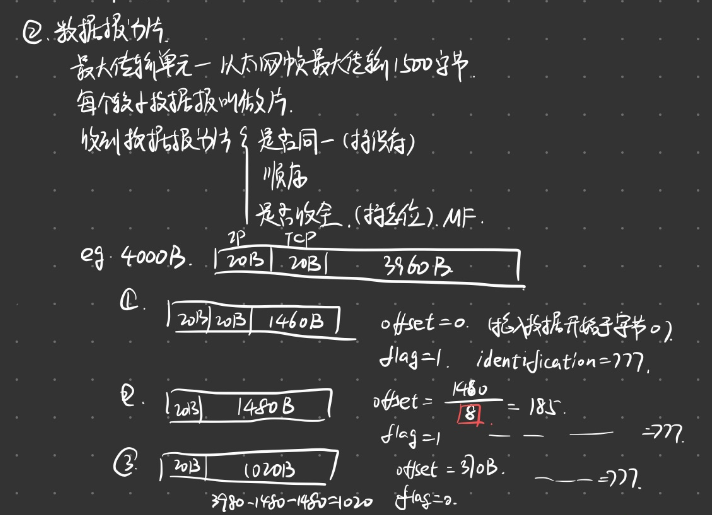 ② 数据报分片
最大传输单元 — 以太网帧最大传输1500字节.
每个较小数据报叫做片.
收到数据报分片 { 是否同一 (标识符)
顺序
是否收全. (标志位) MF.
IP TCP
eg. 4000B. 20B 20B 3960B
①. 20B 20B 1460B offset=0. (插入数据开始于字节0)
flag=1. identification=777.
2. 20B 1480B offset= 1480/8 = 185.
flag=1 — — — =777
③ 20B 1020B offset = 370B. — =777.
3980-1480-1480=1020 flag=0.